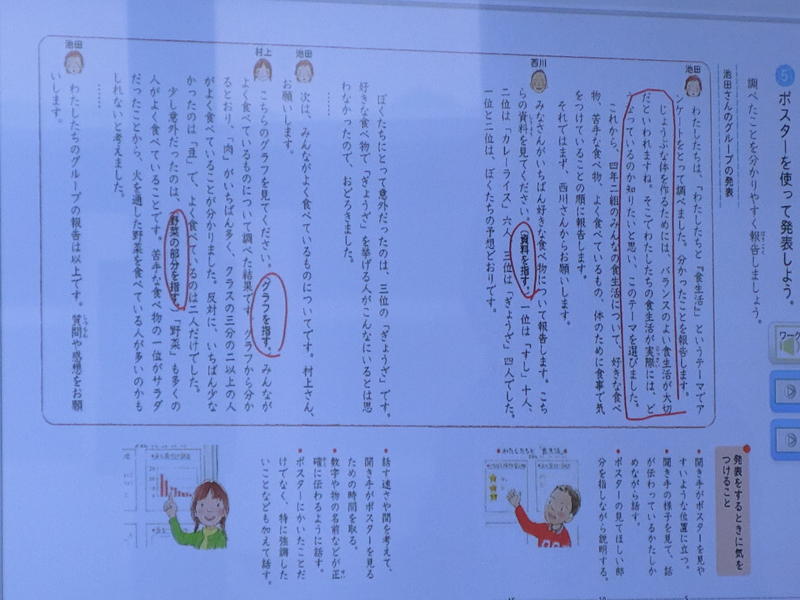 5 ポスターを使って発表しよう。
調べたことを分かりやすく報告しましょう。
池田さんのグループの発表
池田
わたしたちは、「わたしたちと『食生活』」というテーマでア
ンケートをとって調べました。分かったことを報告します。
じょうぶな体を作るためには、バランスのよい食生活が大切
だといわれますね。そこでわたしたちの食生活が実際には、ど
うなっているのか知りたいと思い、このテーマを選びました。
これから、四年二組のみんなの食生活について、好きな食べ
物、苦手な食べ物、よく食べているもの、体のために食事で気
をつけていることの順に報告します。
それではまず、西川さんからお願いします。
西川
みなさんがいちばん好きな食べ物について報告します。こち
らの資料を見てください。(資料を指す。)一位は「すし」十人、
二位は「カレーライス」六人、三位は「ぎょうざ」四人でした。
一位と二位は、ぼくたちの予想どおりです。
ぼくたちにとって意外だったのは、三位の「ぎょうざ」です。
好きな食べ物で「ぎょうざ」を挙げる人がこんなにいるとは思
わなかったので、おどろきました。
……
池田
次は、みんながよく食べているものについてです。村上さん、
お願いします。
村上
こちらのグラフを見てください。(グラフを指す。)みんなが
よく食べているものについて調べた結果です。グラフから分か
るとおり、「肉」がいちばん多く、クラスの三分の二以上の人
がよく食べていることが分かりました。反対に、いちばん少な
かったのは「豆」で、よく食べているのは二人だけでした。
少し意外だったのは、(野菜の部分を指す。)「野菜」も多くの
人がよく食べていることです。苦手な食べ物の一位がサラダ
だったことから、火を通した野菜を食べている人が多いのかも
しれないと考えました。
……
池田
わたしたちのグループの報告は以上です。質問や感想をお願
いします。
発表をするときに気を
つけること
・聞き手がポスターを見や
すいような位置に立つ。
・聞き手の様子を見て、話
が伝わっているかたしか
めながら話す。
・ポスターの見てほしい部
分を指しながら説明する。
・話す速さや間を考えて、
聞き手がポスターを見る
ための時間を取る。
・数字や物の名前などが正
確に伝わるように話す。
・ポスターにかいたことだ
けでなく、特に強調した
いことなども加えて話す。
わたしたちと「食生活」
ワーク